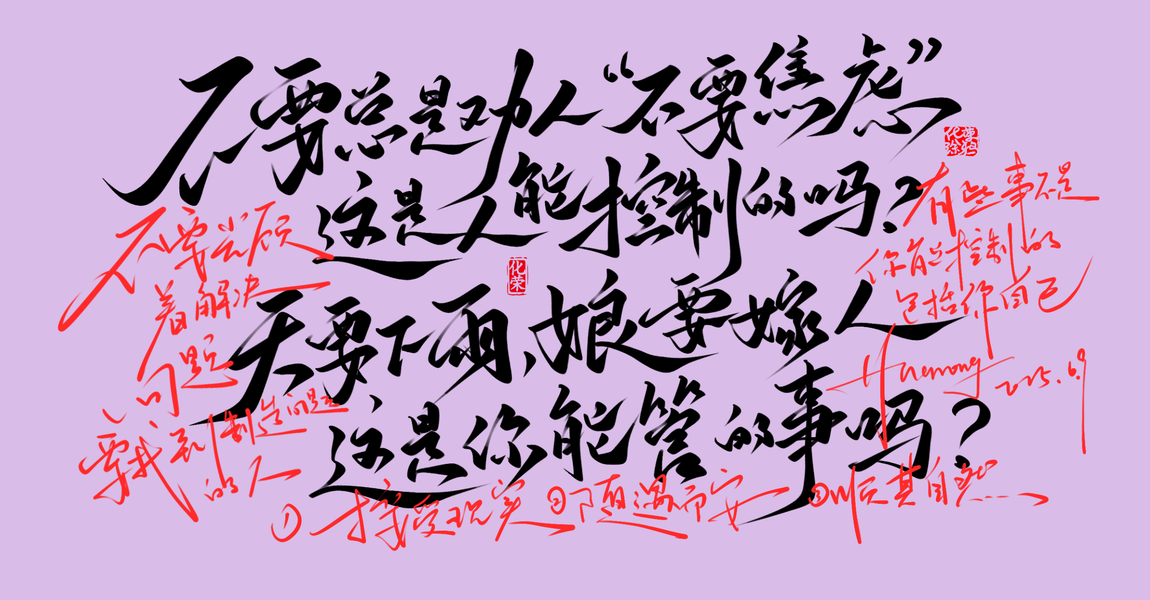 不要总是劝人“不要焦虑”
这是人能控制的吗?
天要下雨,娘要嫁人
这是你能管的事吗?
不要光顾
着解决
问题
要找到制造问题
的人
有些事不是
你能控制的
包括你自己
Huarong 2025.6.9
①接受现实 ②随遇而安 ③顺其自然……
化荣